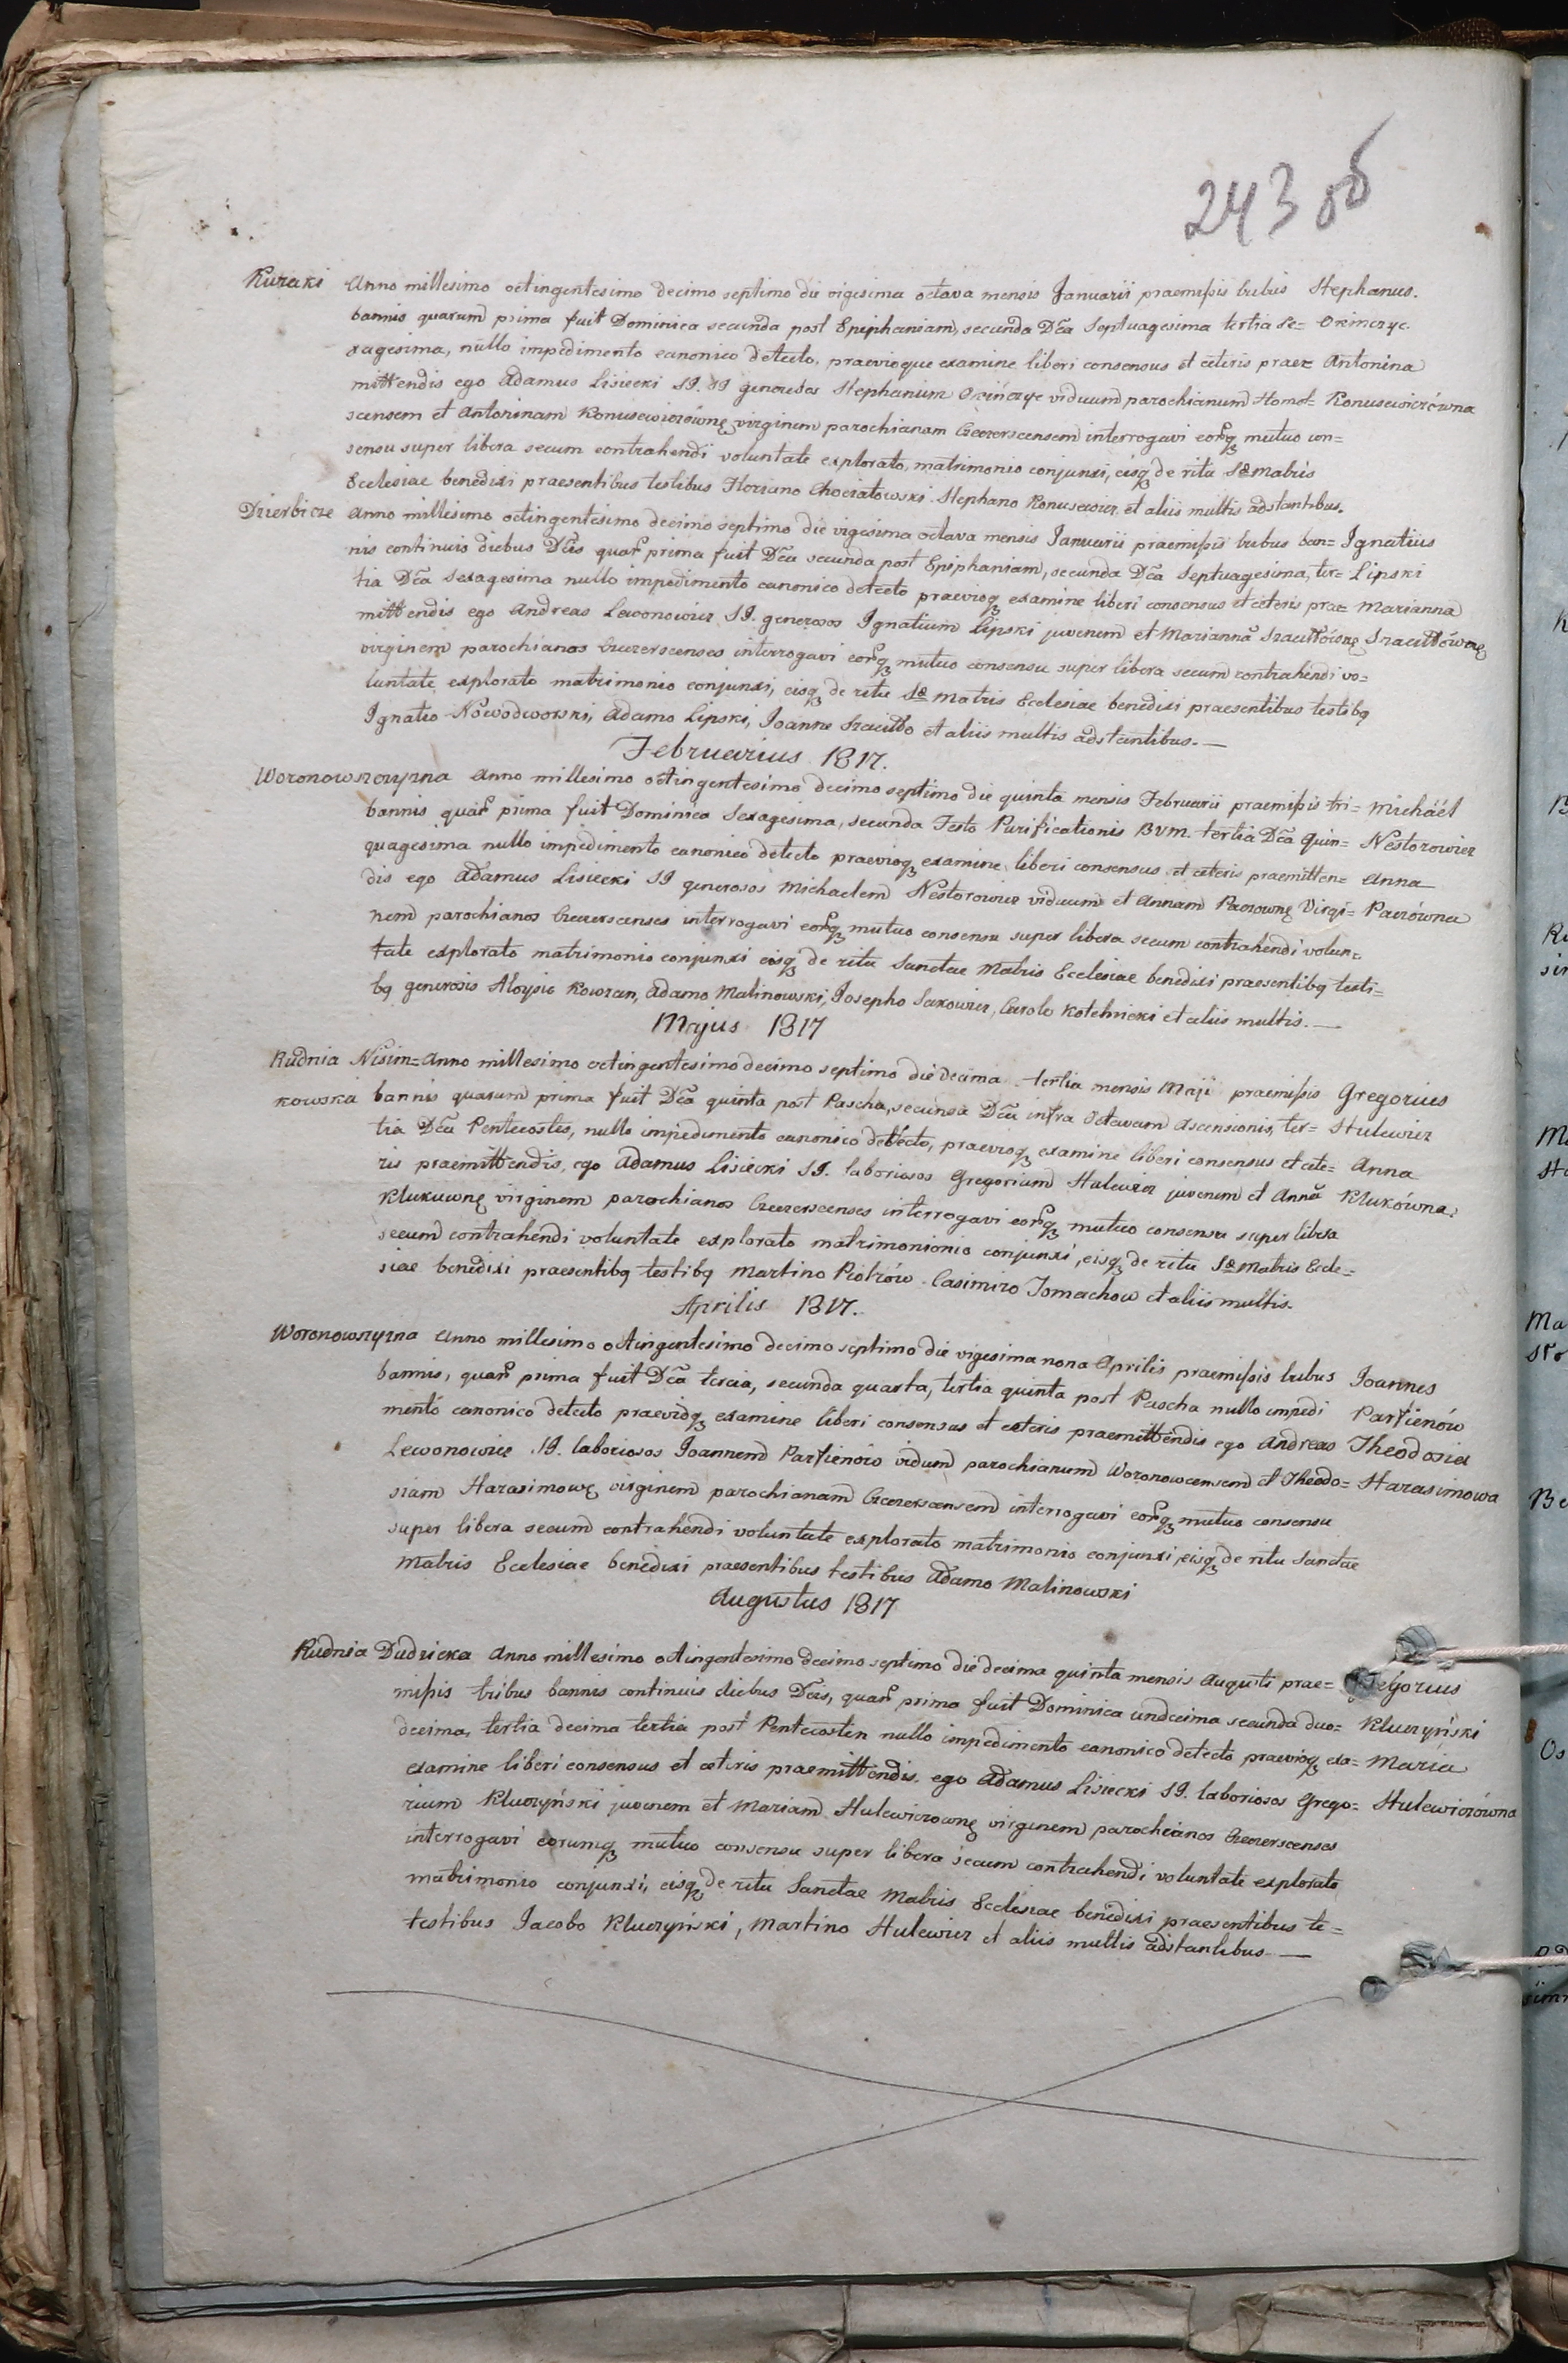 243 об
Kuzaki Anno millesimo octingentesimo decimo septimo die vigesima octava mensis Januarii praemissis tribus Stephanus.
bannis quarum prima fuit Dominica secunda post Epiphaniam, secunda Dca Septuagesima tertia Se= Okinczyc.
xagesima, nullo impedimento canonico detecto, praevioque examine liberi consensus et ceteris prae= Antonina
mittendis ego Adamus Lisiecki SJ. generosos Stephanum Okińczyc viduum parochianum Homel= Konusewiczówna
scensem et Antoninam Konusewiczównę virginem parochianam Czeczerscensem interrogavi eorq mutuo con=
sensu super libera secum contrahendi voluntate explorato, matrimonio conjunxi, eisq de ritu Sae Matris
Ecclesiae benedixi praesentibus testibus Floriano Chociatowski Stephano Konusewicz et aliis multis adstantibus.
Dzierbicze Anno millesimo octingentesimo decimo septimo die vigesima octava mensis Januarii praemissis tribus ban= Ignatius
nis continuis diebus Dcis quar prima fuit Dca secunda post Epiphaniam, secunda Dca Septuagesima, ter= Lipski
tia Dca Sexagesima nullo impedimento canonico detecto praevioq examine liberi consensus et ceteris prae= Marianna
mittendis ego Andreas Lewonowicz SJ. generosos Ignatium Lipski juvenem et Mariannā Szacittównę Szacittównę
virginem parochianos Czeczerscenses interrogavi eorq mutuo consensu super libera secum contrahendi vo=
luntate explorato matrimonio conjunxi, eisq de ritu Sae Matris Ecclesiae benedixi praesentibus testibq
Ignatio Nowodworski, Adamo Lipski, Joanne Szacitto et aliis multis adstantibus. —
Februarius 1817.
Woronowszczyzna Anno millesimo octingentesimo decimo septimo die quinta mensis Februarii praemissis tri= Michaël
bannis quar prima fuit Dominica Sexagesima, secunda Festo Purificationis BVM. tertia Dca Quin= Nestorowicz
quagesima nullo impedimento canonico detecto praevioq examine liberi consensus et ceteris praemitten= Anna
dis ego Adamus Lisiecki SJ generosos Michaelem Nestorowicz viduum et Annam Paczownę Virgi= Paczówna
nem parochianos Czeczerscenses interrogavi eorq mutuo consensu super libera secum contrahendi volun=
tate explorato matrimonio conjunxi eisq de ritu Sanctae Matris Ecclesiae benedixi praesentibq testi=
bq generosis Aloysio Kowzan, Adamo Malinowski, Josepho Sakowicz, Carolo Kotelnicki et aliis multis. —
Majus 1817
Rudnia Nisim= Anno millesimo octingentesimo decimo septimo die decima tertia mensis Maji praemissis Gregorius
kowska bannis quarum prima fuit Dca quinta post Pascha, secunda Dca infra Octavam Ascensionis, ter= Hulewicz
tia Dca Pentecostes, nullo impedimento canonico detecto, praevioq examine liberi consensus et cete= Anna
ris praemittendis, ego Adamus Lisiecki SJ. laboriosos Gregorium Hulewicz juvenem et Annā Klukówna.
Klukuwnę virginem parochianos Czeczerscenses interrogavi eorq mutuo consensu super libera
secum contrahendi voluntate explorato matrimonionio conjunxi, eisq de ritu Sae Matris Eccle=
siae benedixi praesentibq testibq Martino Piotrów Casimiro Tomachow et aliis multis.
Aprilis 1817.
Woronowszyzna Anno millesimo octingentesimo decimo septimo die vigesima nona Aprilis praemissis tribus Joannes
bannis, quar prima fuit Dca tercia, secunda quarta, tertia quinta post Pascha nullo impedi Parfienów
mento canonico detecto praevioq examine liberi consensus et ceteris praemittendis ego Andreas Theodosia
Lewonowicz SJ. laboriosos Joannem Parfienów vidum parochianum Woronowcensem et Theodo= Harasimowa
siam Harasimowę virginem parochianam Czeczerscensem interrogavi eorq mutuo consensu
super libera secum contrahendi voluntate explorato matrimonio conjunxi, eisq de ritu Sanctae
Matris Ecclesiae benedixi praesentibus testibus Adamo Malinowski
Augustus 1817
Rudnia Dudzicka Anno millesimo octingentesimo decimo septimo die decima quinta mensis Augusti prae= Gregorius
missis tribus bannis continuis diebus Dcis, quar prima fuit Dominica undecima secunda duo= Kluczyński
decima, tertia decima tertia post Pentecosten nullo impedimento canonico detecto praevioq exa= Maria
examine liberi consensus et ceteris praemittendis. ego Adamus Lisiecki SJ. laboriosos Grego= Hulewiczówna
rium Kluczyński juvenem et Mariam Hulewiczownę virginem parochianos Czeczerscenses
interrogavi eorumq mutuo consensu super libera secum contrahendi voluntate explorato
matrimonio conjunxi, eisq de ritu Sanctae Matris Ecclesiae benedixi praesentibus te=
stibus Jacobo Kluczyński, Martino Hulewicz et aliis multis adstantibus —